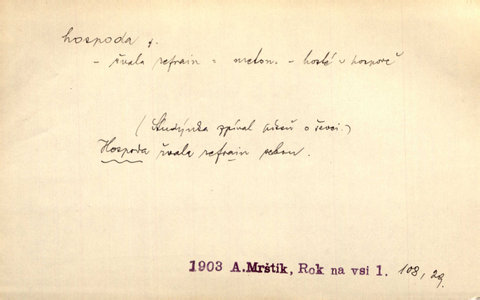 hospoda f.
- řvala refrain = meton. - hosté v hospodě
(Studýnka zpíval píseň o ševci.)
Hospoda řvala refrain sebou.
1903 A.Mrštík, Rok na vsi 1. 108, 29.